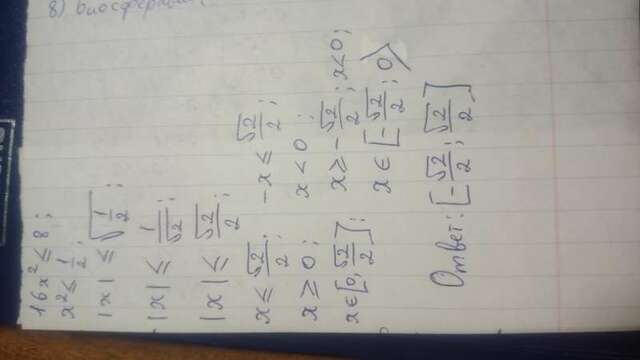 16x² ≤ 8;
x² ≤ 1/2;
|x| ≤ √(1/2);
|x| ≤ 1/√2;
|x| ≤ √2/2;
x ≤ √2/2; -x ≤ √2/2;
x ≥ 0; x < 0;
x ∈ [0, √2/2]; x ≥ -√2/2; x < 0;
x ∈ [-√2/2; 0)
Ответ: [-√2/2; √2/2]
8)